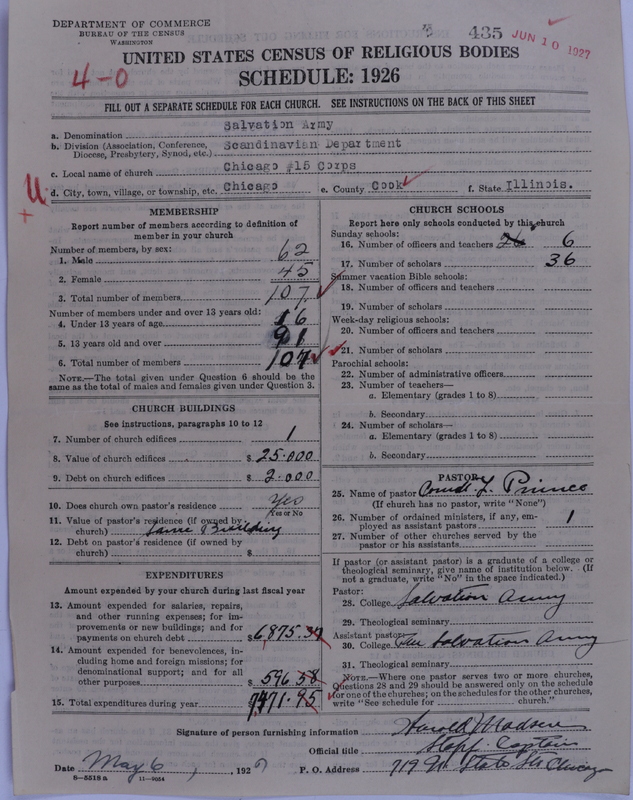 DEPARTMENT OF COMMERCE
BUREAU OF THE CENSUS
WASHINGTON
435
JUN 10 1927
UNITED STATES CENSUS OF RELIGIOUS BODIES
4-0
SCHEDULE: 1926
FILL OUT A SEPARATE SCHEDULE FOR EACH CHURCH. SEE INSTRUCTIONS ON THE BACK OF THIS SHEET
a. Denomination Salvation Army
b. Division (Association, Conference, Diocese, Presbytery, Synod, etc.) Scandinavian Department
c. Local name of church Chicago #15 Corps
d. City, town, village, or township, etc. Chicago e. County Cook f. State Illinois.
MEMBERSHIP
Report number of members according to definition of
member in your church
Number of members, by sex:
1. Male 62
2. Female 45
3. Total number of members 107
Number of members under and over 13 years old:
4. Under 13 years of age 16
5. 13 years old and over 91
6. Total number of members 107
NOTE.—The total given under Question 6 should be the
same as the total of males and females given under Question 3.
CHURCH BUILDINGS
See instructions, paragraphs 10 to 12
7. Number of church edifices 1
8. Value of church edifices $ 25.000
9. Debt on church edifices $ 2.000
10. Does church own pastor's residence Yes
Yes or No
11. Value of pastor's residence (if owned by
church) Same Building
12. Debt on pastor's residence (if owned by
church) $
EXPENDITURES
Amount expended by your church during last fiscal year
13. Amount expended for salaries, repairs,
and other running expenses; for im-
provements or new buildings; and for
payments on church debt $ 6,875.37
14. Amount expended for benevolences, in-
cluding home and foreign missions; for
denominational support; and for all
other purposes $ 596.58
15. Total expenditures during year $ 7471.95
CHURCH SCHOOLS
Report here only schools conducted by this church
Sunday schools:
16. Number of officers and teachers 26 6
17. Number of scholars 36
Summer vacation Bible schools:
18. Number of officers and teachers
19. Number of scholars
Week-day religious schools:
20. Number of officers and teachers
21. Number of scholars
Parochial schools:
22. Number of administrative officers
23. Number of teachers—
a. Elementary (grades 1 to 8)
b. Secondary
24. Number of scholars—
a. Elementary (grades 1 to 8)
b. Secondary
PASTOR
25. Name of pastor L. Prince
(If church has no pastor, write "None")
26. Number of ordained ministers, if any, em-
ployed as assistant pastors 1
27. Number of other churches served by the
pastor or his assistants
If pastor (or assistant pastor) is a graduate of a college or
theological seminary, give name of institution below. (If
not a graduate, write "No" in the space indicated.)
Pastor:
28. College Salvation Army
29. Theological seminary
Assistant pastor:
30. College The Salvation Army
31. Theological seminary
NOTE.—Where one pastor serves two or more churches,
Questions 28 and 29 should be answered only on the schedule
for one of the churches; on the schedules for the other churches,
write "See schedule for church."
Signature of person furnishing information Harold J Madsen
Official title Captain
Date May 6, 1927 P. O. Address 719 N. State St. Chicago
8-5518a 11-9054